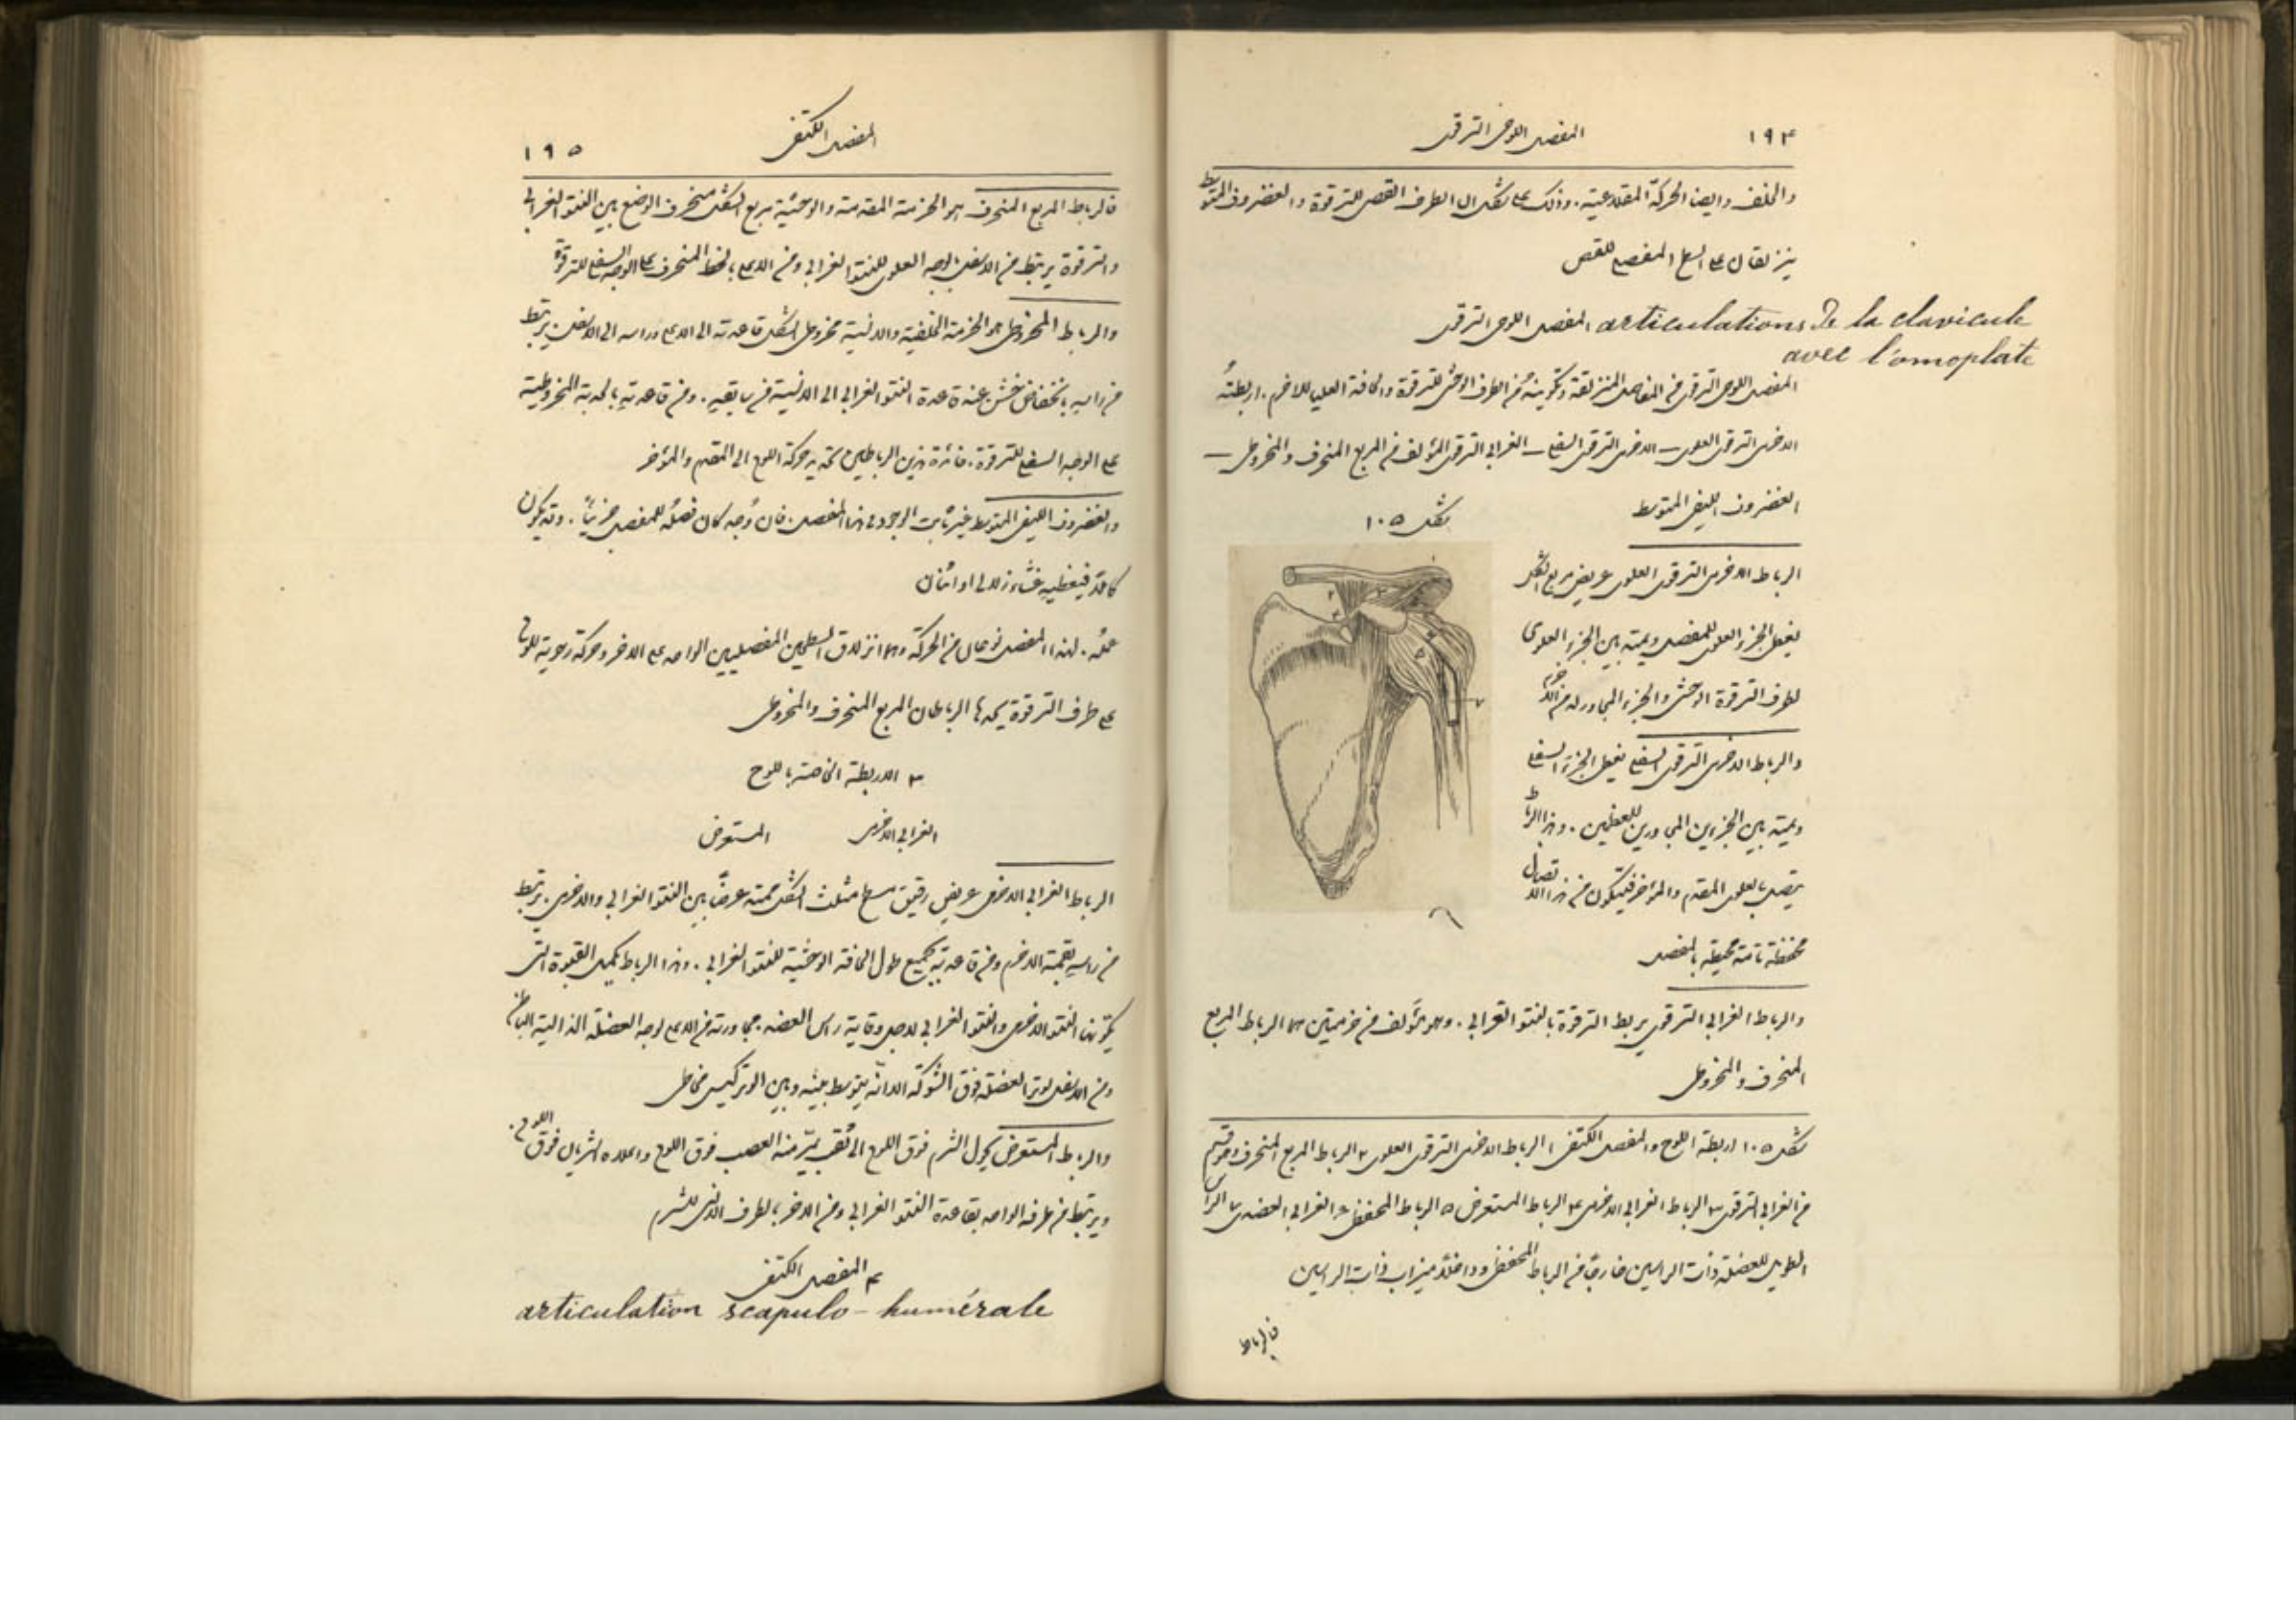 ١٩٤
المفصل اللوحي الترقوي
والخلف وايضا الحركة المقلاعية. وذلك على شكل ان الطرف القصي للترقوة والغضروف المتوسط
ينزلقان على السطح المفصلي للقص
المفصل اللوحي الترقوي articulations de la clavicule
avec l'omoplate
المفصل اللوحي الترقوي من المفاصل المنزلقة وتكوينه من الطرف الوحشي للترقوة والحافة العليا للاخرم. اربطته
الاخرمي الترقوي العلوي — الاخرمي الترقوي السفلي — الغرابي الترقوي المؤلف من المربع المنحرف والمخروطي —
الغضروف الليفي المتوسط
شكل ١٠٥
الرباط الاخرمي الترقوي العلوي عريض مربع الشكل
يغطي الجزء العلوي للمفصل ويمتد بين الجزء العلوي
لطرف الترقوة الوحشي والجزء المجاور له من الاخرم
والرباط الاخرمي الترقوي السفلي يغطي الجزء السفلي
ويمتد بين الجزءين المجاورين للعظمين. وهذا الرباط
يتصل بالعلوي المقدم والمؤخر فيتكون من هذا الاتصال
محفظة تامة محيطة بالمفصل
والرباط الغرابي الترقوي يربط الترقوة بالنتو الغرابي. وهو مؤلف من حزمتين هما الرباط المربع
المنحرف والمخروطي
شكل ١٠٥ اربطة اللوح والمفصل الكتفي ١ الرباط الاخرمي الترقوي العلوي ٢ الرباط المربع المنحرف وهو قسم
من الغرابي الترقوي ٣ الرباط الغرابي الاخرمي ٤ الرباط المستعرض ٥ الرباط المحفظي ٦ الغرابي العضدي ٧ الراس
الطويل للعضلة ذات الراسين خارجًا من الرباط المحفظي وداخلًا ميزاب ذات الراسين
فالرباط
المفصل الكتفي
١٩٥
فالرباط المربع المنحرف هو الحزمة المقدمة والوحشية مربع الشكل منحرف الوضع بين النتو الغرابي
والترقوة يرتبط من الاسفل بالوجه العلوي للنتو الغرابي ومن الاعلى بالخط المنحرف على الوجه السفلي للترقوة
والرباط المخروطي هو الحزمة الخلفية والانسية مخروطي الشكل قاعدته الى الاعلى وراسه الى الاسفل. يرتبط
من راسه بانخفاض خشن عند قاعدة النتو الغرابي الى الانسية من سابقه. ومن قاعدته بالحدبة المخروطية
على الوجه السفلي للترقوة. فائدة هذين الرباطين تحديد حركة اللوح الى المقدم والمؤخر
والغضروف الليفي المتوسط غير ثابت الوجود في هذا المفصل. فان وُجد كان فصله للمفصل جزئيًا. وقد يكون
كاملًا فيغطيه غشاء زلالي او اثنان
عمله. لهذا المفصل نوعان من الحركة وهما انزلاق السطحين المفصليين الواحد على الاخر وحركة رحوية للوح
على طرف الترقوة يحدها الرباطان المربع المنحرف والمخروطي
٣ الاربطة الخاصة باللوح
الغرابي الاخرمي المستعرض
الرباط الغرابي الاخرمي عريض رقيق مسطح مثلث الشكل ممتد عرضًا بين النتو الغرابي والاخرمي. يرتبط
من راسه بقمة الاخرم ومن قاعدته بجميع طول الحافة الوحشية للنتو الغرابي. وهذا الرباط يكمل القبوة التي
يكونها النتو الاخرمي والنتو الغرابي لاجل وقاية راس العضد. مجاورته من الاعلى لوجه العضلة الذالية الباطن
ومن الاسفل لوتر العضلة فوق الشوكة الا انه يتوسط بينه وبين الوتر كيس مخاطي
والرباط المستعرض يحول الشرم فوق اللوح الى ثقب يمرّ منه العصب فوق اللوح واعلاه الشريان فوق اللوح.
ويرتبط من طرفه الواحد بقاعدة النتو الغرابي ومن الاخر بالطرف الانسي للشرم
٤ المفصل الكتفي
articulation scapulo-humérale